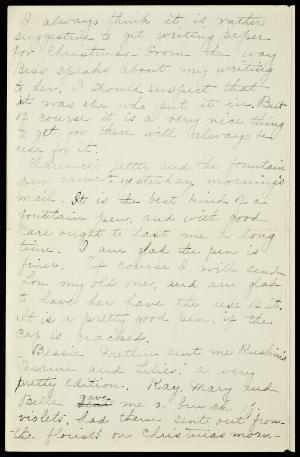 I always think it is rather
suggestive to get writing paper
for Christmas From the way
Bess speaks about my writing
to her, I should suspect that
it was she who put it in. But
of course it is a very nice thing
to get, for there will always be
use for it.
Clarence's letter and the fountain
pen came in yesterday morning's
mail. It is the best kind of a
fountain pen, and with good
care ought to last me a long
time. I am glad the pen is
finer. Of course I will send
you my old one, and am glad
to have her have the use of it.
It is a pretty good pen, if the
cap is cracked.
Bessie sent me Ruskin's
"Sesame and Lilies," a very
pretty edition. Kay, Mary and
Belle gave me a bunch of
violets, had them sent out from
the florist's on Christmas morn-